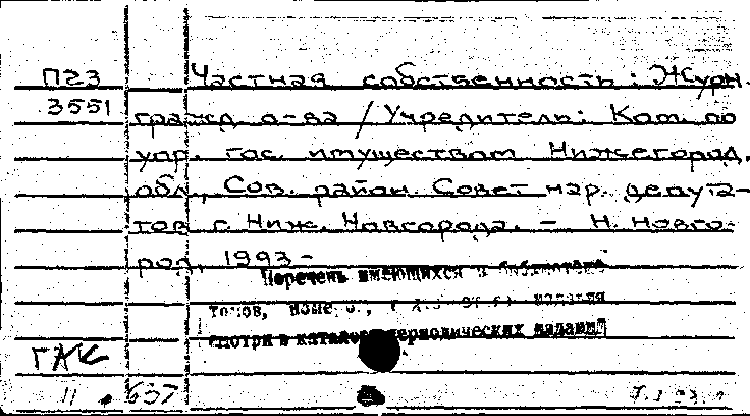 П23 Частная собственность: Журн.
3551 гражд. о-ва / Учредитель: Ком. по
упр. гос. имуществом Нижегород.
обл., Сов. район. Совет нар. депута-
тов г. Ниж. Новгорода. – Н. Новго-
род, 1993 -
Перечень имеющихся в библиотеке
томов, издания
смотри в каталоге периодических изданий
ГАК
11 637